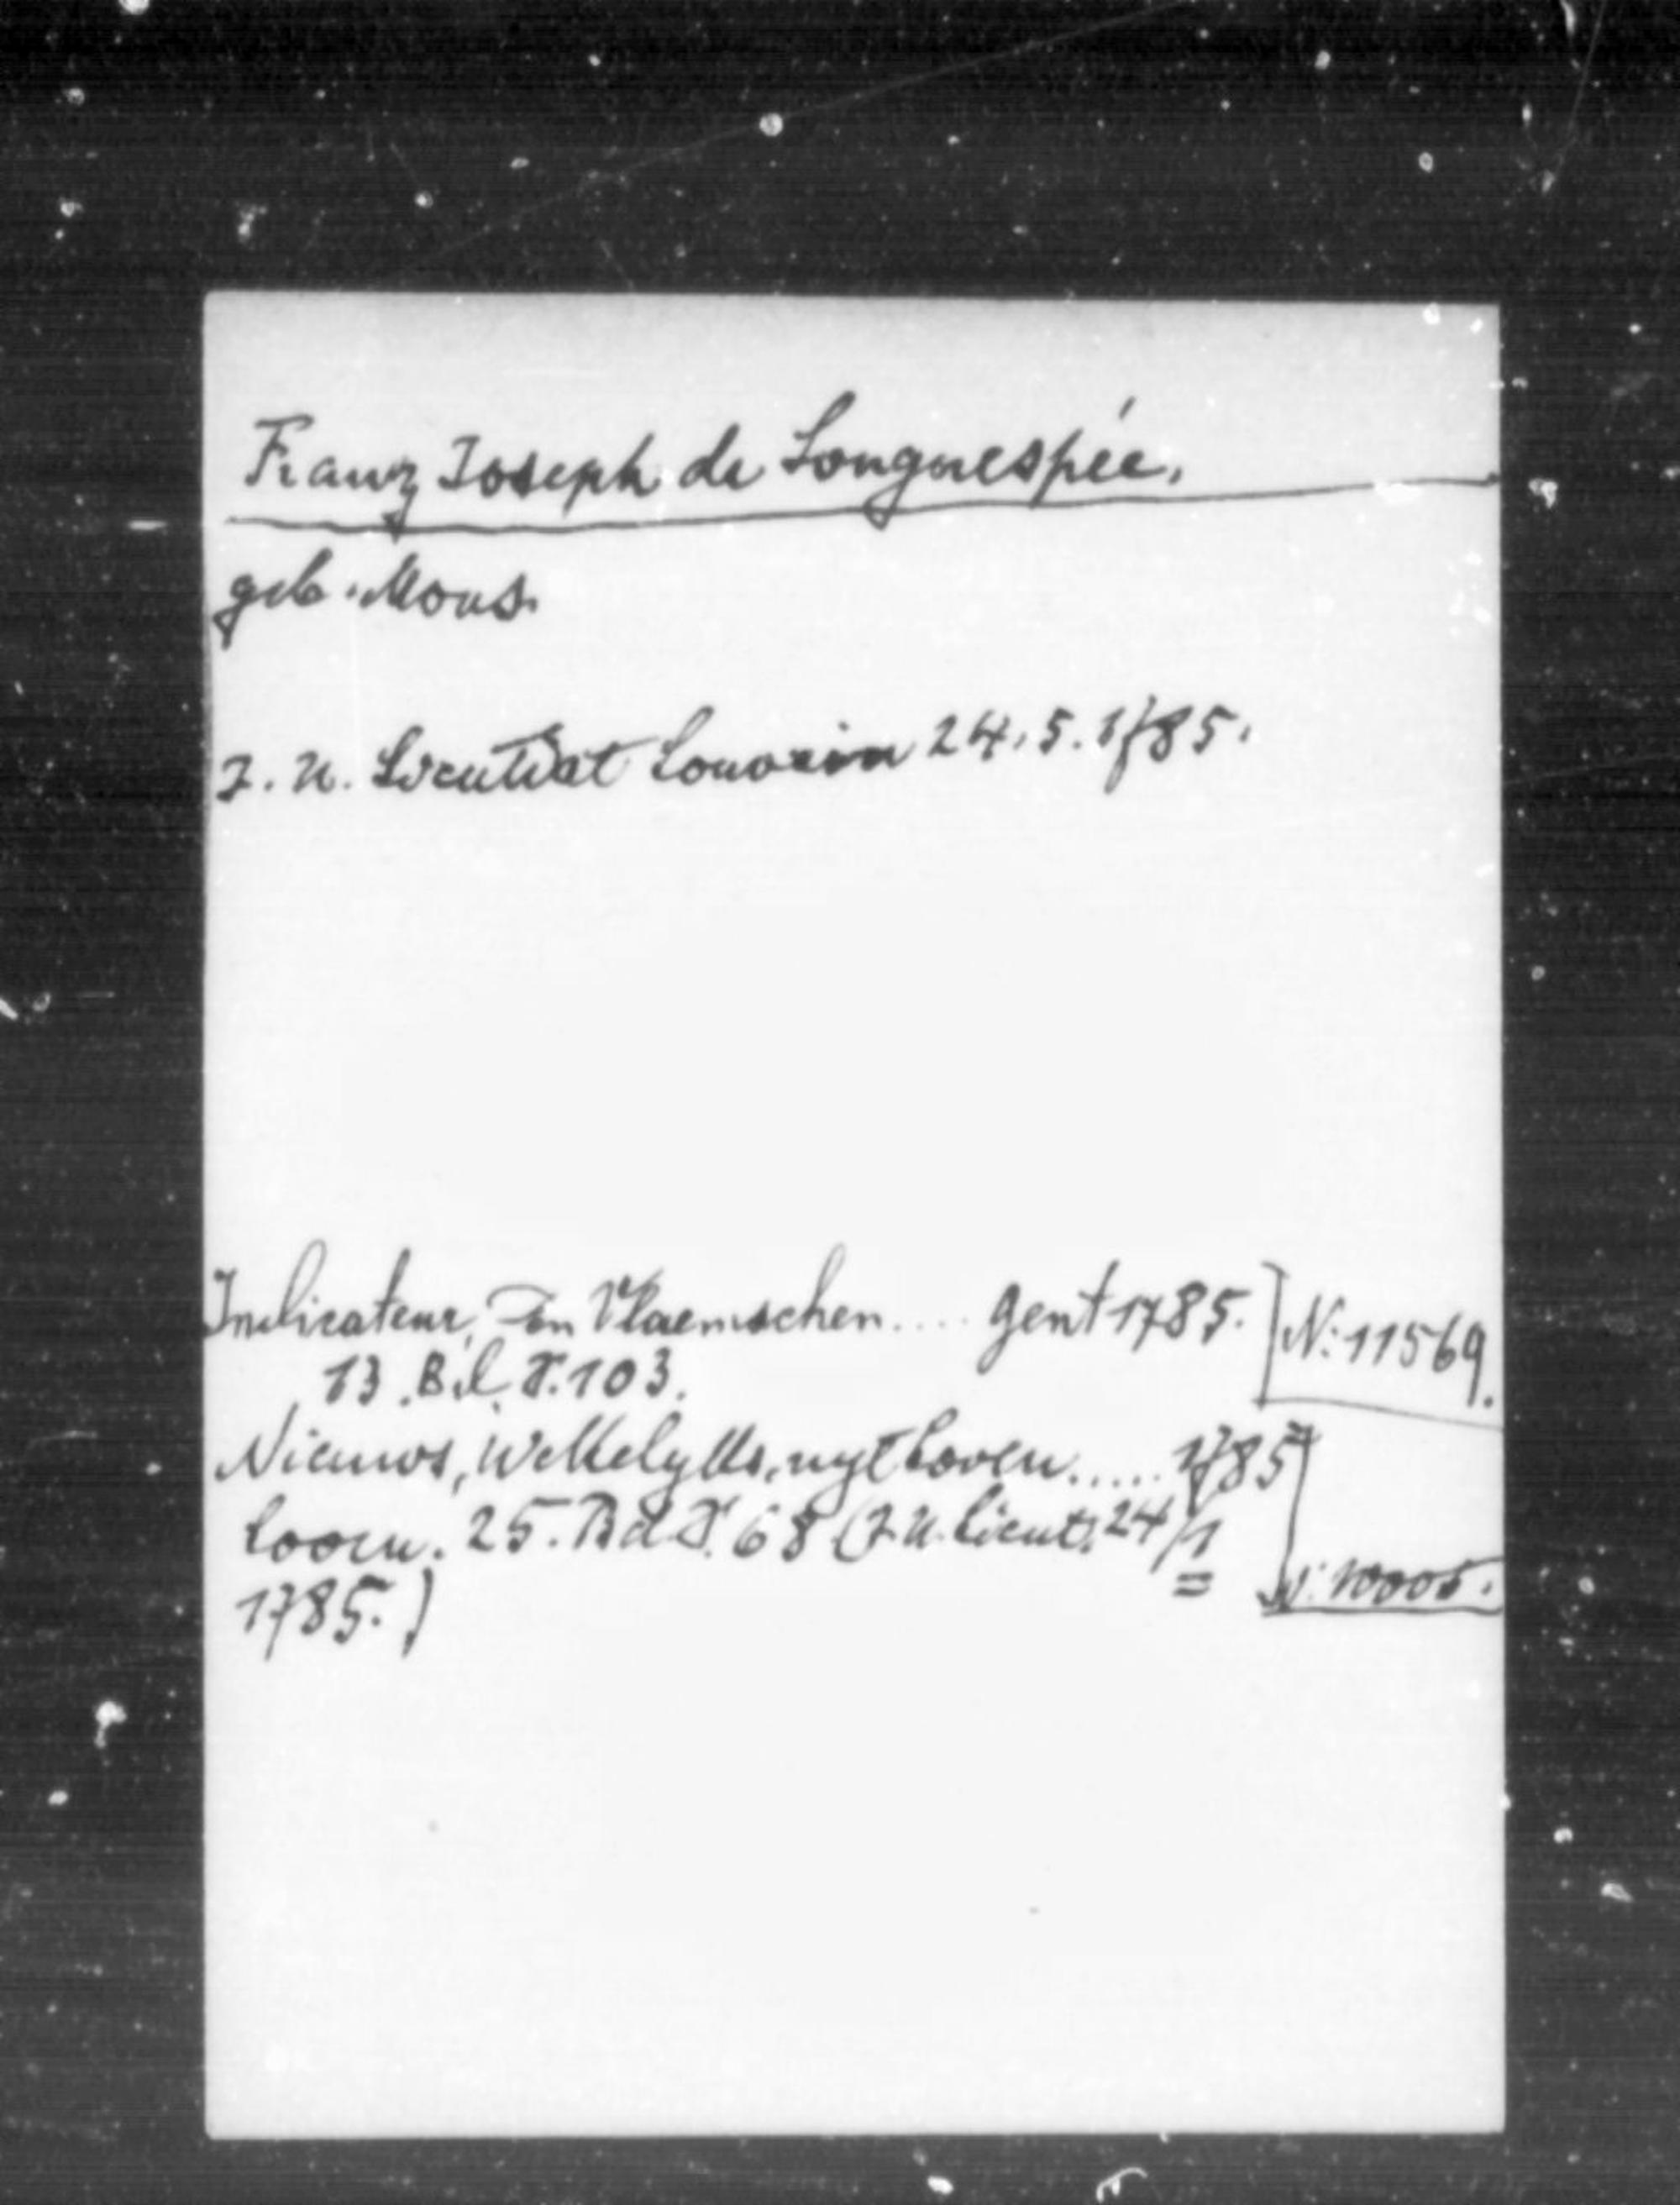 Franz Joseph de Longuespée.
geb. Mons.
J. U. Licentiat Louvain 24. 5. 1785.
Indicateur, Den Vlaemschen.... Gent 1785. N: 11569.
13. Bd. S. 103.
Nieuws, Wekkelyks, uyt Loven..... 1785
Loven. 25. Bd. S. 68 (J. U. Licent. 24/1 N: 10005.
1785.)